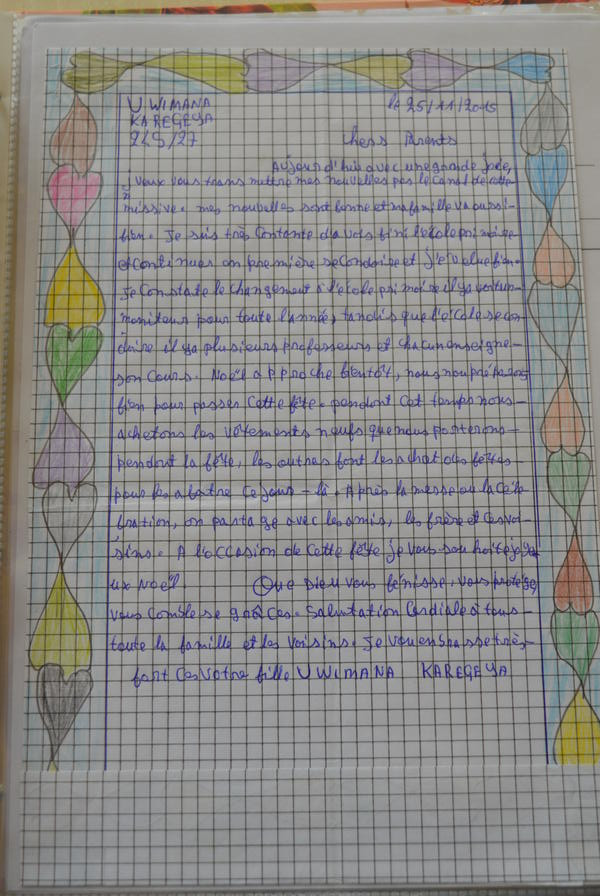 UWIMANA le 25/11/2015
KAREGEYA
245/27
Chers Parents
Aujourd'hui avec une grande joie,
je veux vous trans mettre mes nouvelles pas le canal de cette
missive. mes nouvelles sont bonne et ma famille va aussi-
bien. Je suis très contante d'avois fini l'école primaire
et continues on première secondaire et j'évolue bien.
Je constate le changement à l'école primaire il ya
moniteur pour toute l'année, tandis que l'école secon
daire il ya plusieurs professeurs et chacun enseigne-
son cours. Noël approche bientôt, nous nou préparons
bien pour passer cette fête. pendant cet temps nous-
achetons les vêtements neufs que nous porterons-
pendant la fête, les autres font les achat des bêtes
pour les abatre ce jour-là. Après la messe ou la célé
bration, on partage avec les amis, les frère et ces voi-
sins. A l'occasion de cette fête je vous souhaite joye
ux Noël. Que Dieu vous bénisse, vous protège,
vous comble se grâces. Salutation cordiale à tous-
toute la famille et les voisins. Je vou enbrasse très-
fort ces votre fille UWIMANA KAREGEYA